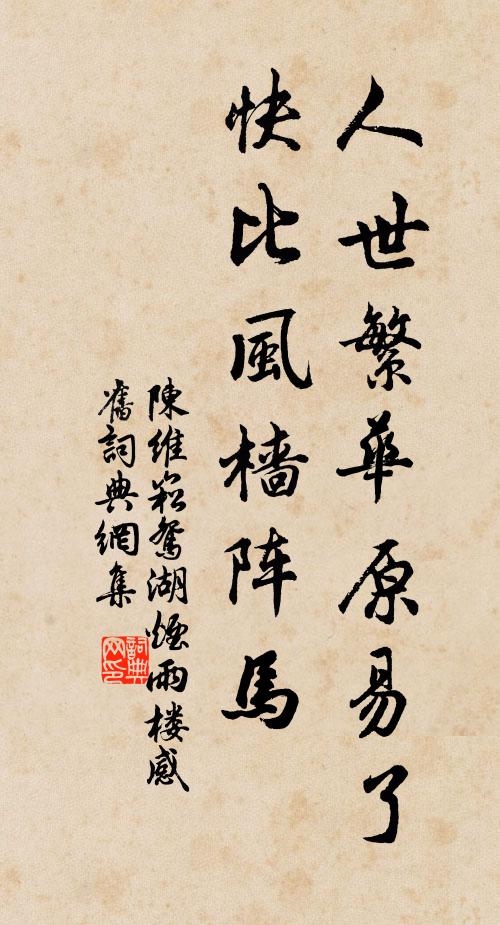 人世繁華原易了
快比風檣阵馬
陳維崧鴛湖煙雨楼感
舊詞典網集
詞典网印